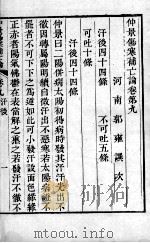 仲景傷寒補亡論卷第九
河南郭雍譔次
汗後四十四條 不可吐五條
可吐十條
汗後四十四條
仲景曰二陽併病太陽初得病時發其汗汗先出不
徹因轉屬陽明續自微汗出不惡寒若太陽病證不
罷者不可下下之為逆如此可小發汗設面色緣緣
正赤者陽氣怫鬱在表當解之熏之若發汗不徹不